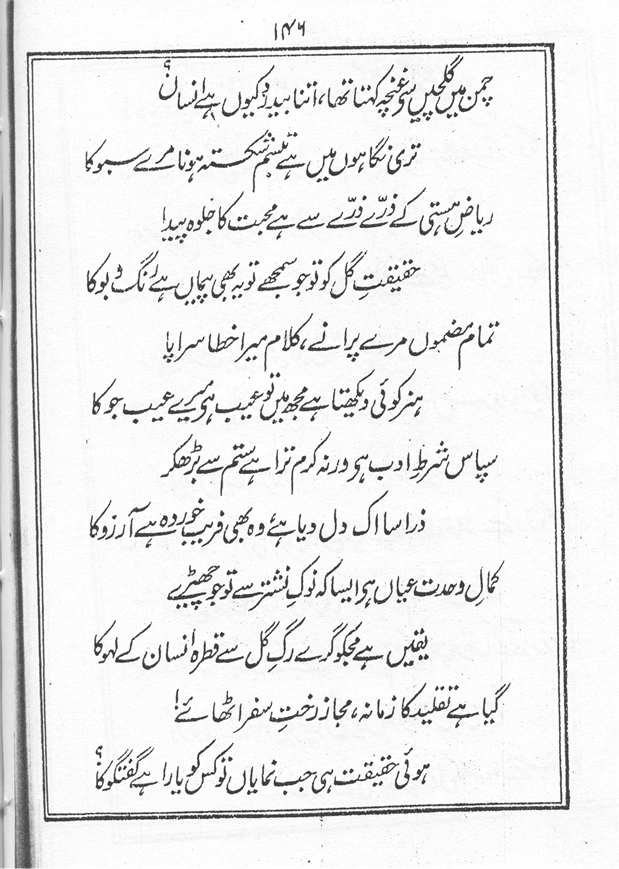 ۱۴۶
چمن میں گلچیں سے غنچہ کہتا تھا، اتنا بیدرد کیوں ہے انساں؟
تری نگاہوں میں ہے تبسم شکستہ ہونا مرے سبو کا
ریاضِ ہستی کے ذرّے ذرّے سے ہے محبت کا جلوہ پیدا!
حقیقتِ گل کو تو جو سمجھے تو یہ بھی پیماں ہے رنگ و بو کا
تمام مضموں مرے پرانے، کلام میرا خطا سراپا
ہنر کوئی دیکھتا ہے مجھ میں تو عیب ہی میرے عیب جو کا
سپاس شرطِ ادب ہی ورنہ کرم ترا ہے ستم سے بڑھکر
ذرا سا اک دل دیا ہے وہ بھی فریب خوردہ ہے آرزو کا
کمالِ وحدت عیاں ہی ایسا کہ نوکِ نشتر سے تو جو چھیڑے
یقیں ہے مجکو گرے رگِ گل سے قطرہ انسان کے لہو کا
گیا ہے تقلید کا زمانہ، مجاز رختِ سفر اٹھائے!
ہوئی حقیقت ہی جب نمایاں تو کس کو یارا ہے گفتگو کا؟